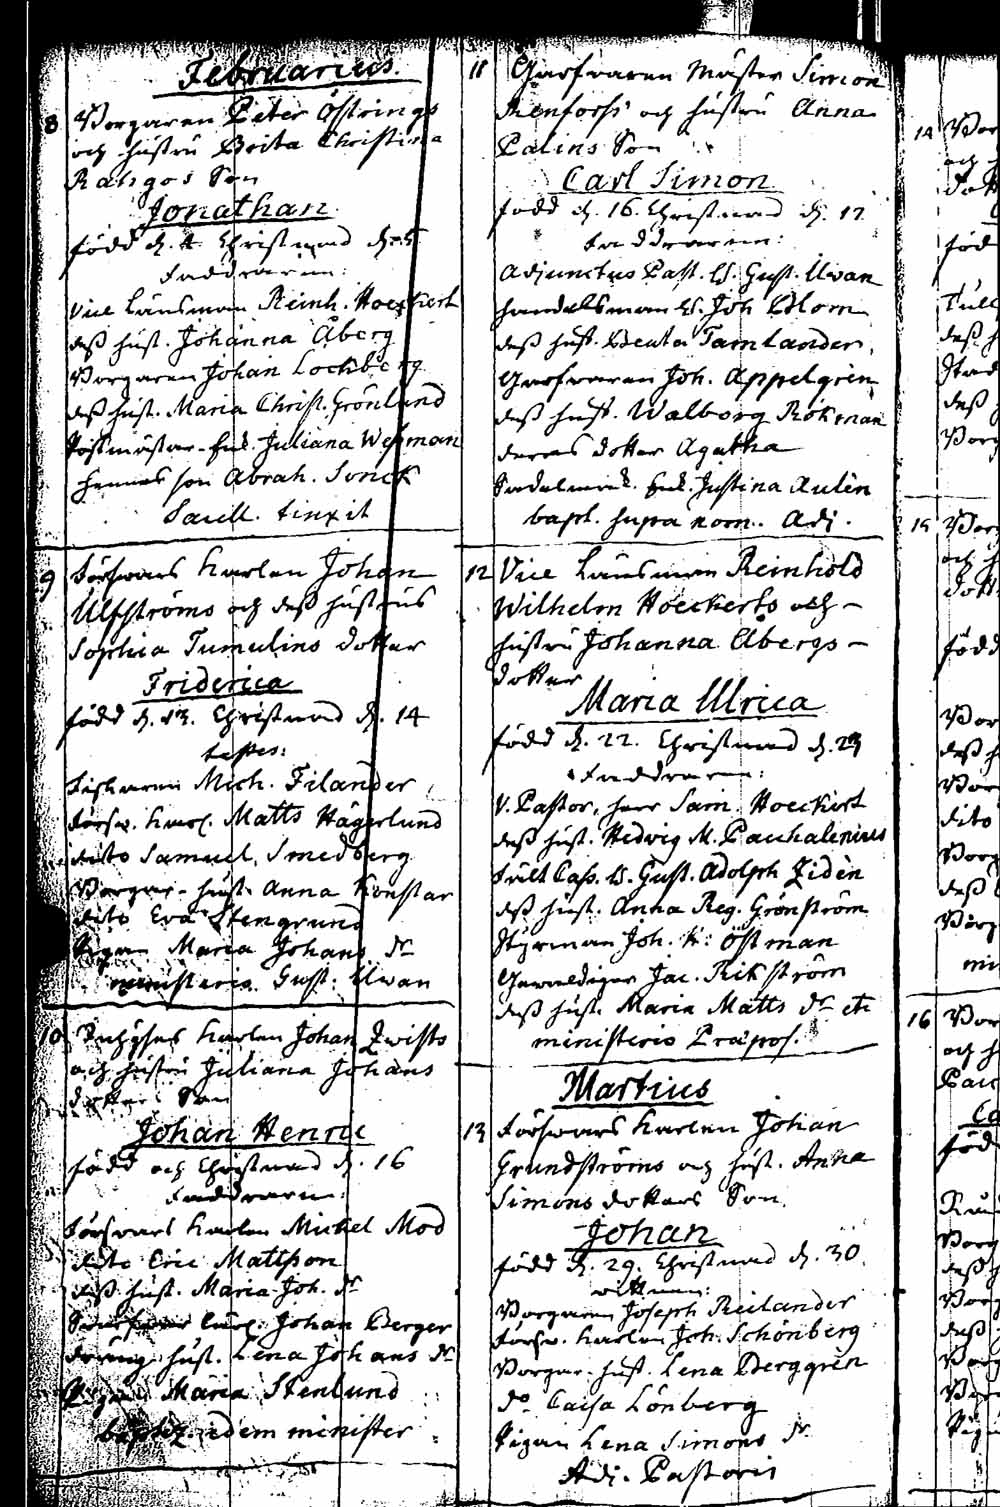 Februarius.
8 Borgaren Peter Östrings
och hustru Brita Christina
Rahgos Son
Jonathan
född d. 4 Christnad d. 5
Faddrarne:
Vice Länsman Reinh. Hoeckert
deß hust. Johanna Åberg
Borgaren Johan Lochberg
deß hust. Maria Christ. Grönlund
Postmästar-Enk. Juliana Weßman
hennes son Abrah. Sonck
Saell. tinxit
9 Försvars Karlen Johan
Ulfströms och deß hustrus
Sophia Tumulins dotter
Friderica
född d. 13. Christnad d. 14
testes:
Fiskaren Mich. Filander
Försv. Karl. Matts Hägerlund
dito Samuel Smedberg
Borgar-hust. Anna Konstar
dito Eva Stengrund
Pigan Maria Johans dr
ministerio Gust. Uwan
10 Inhyses Karlen Johan Qwists
och hustru Juliana Johans
dotters Son
Johan Henric
född och Christnad d. 16
Faddrarne:
Försvars Karlen Michel Mod
dito Eric Mattsson
deß hust. Maria Joh. dr
Karl. Johan Berger
dräng-hust. Lena Johans dr
Pigan Maria Stenlund
baptiz. edem minister
11 Garfvaren Mäster Simon
Renforss och hustru Anna
Palins Son
Carl Simon
född d. 16. Christnad d. 17
Faddrarne:
Adjunctus Past. H. Gust. Uwan
Handelsman H. Joh Blom
deß hust. Beata Tamlander,
Garfvaren Joh. Appelgren
deß hust. Walborg Rökman
deras dotter Agatha
Sadelmak. Enk. Justina Aulèn
bapt. supra nom. Adj.
12 Vice Länsman Reinhold
Wilhelm Hoeckerts och
hustru Johanna Åbergs
dotter
Maria Ulrica
född d. 22. Christnad d. 23
Faddrarne:
V. Pastor, herr Sam. Hoeckert
deß hust. Hedwig M. Pauchalenius
Tull Cass. H. Gust. Adolph Zidèn
deß hust. Anna Reg. Grönström
Styrman Joh. K: Östman
Gewaldiger Jac. Rikström
deß hust. Maria Matts dr etc
ministerio Præpos.
Martius
13 Försvars Karlen Johan
Grundströms och hust. Anna
Simons dotters Son
Johan
född d. 29. Christnad d. 30.
vittnen:
Borgaren Joseph Reilander
Försv. Karlen Joh. Schönberg
Borgar-hust. Lena Berggrèn
do Caisa Lönberg
Pigan Lena Simons dr
Adj. Pastoris
14 Bor
och
född
15 Bor
född
16 Bor
och
född